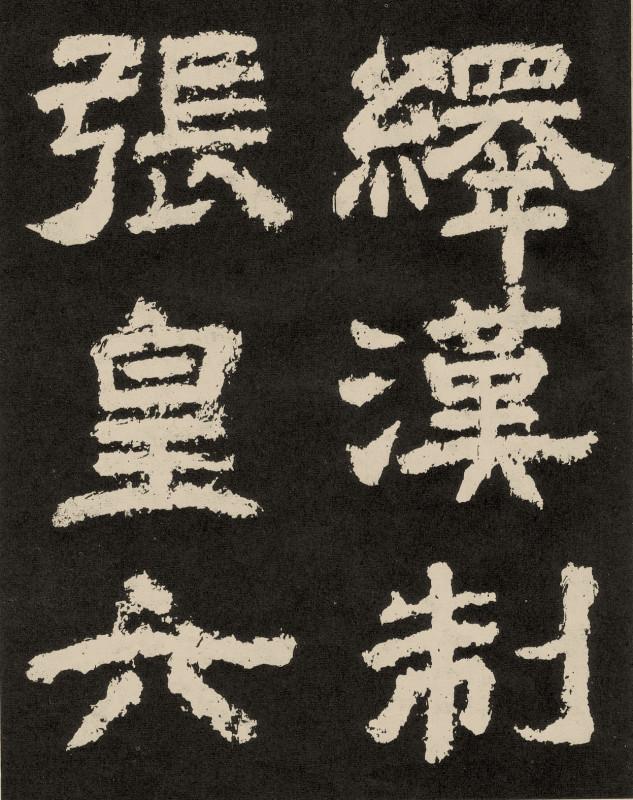 繹漢制
張皇六